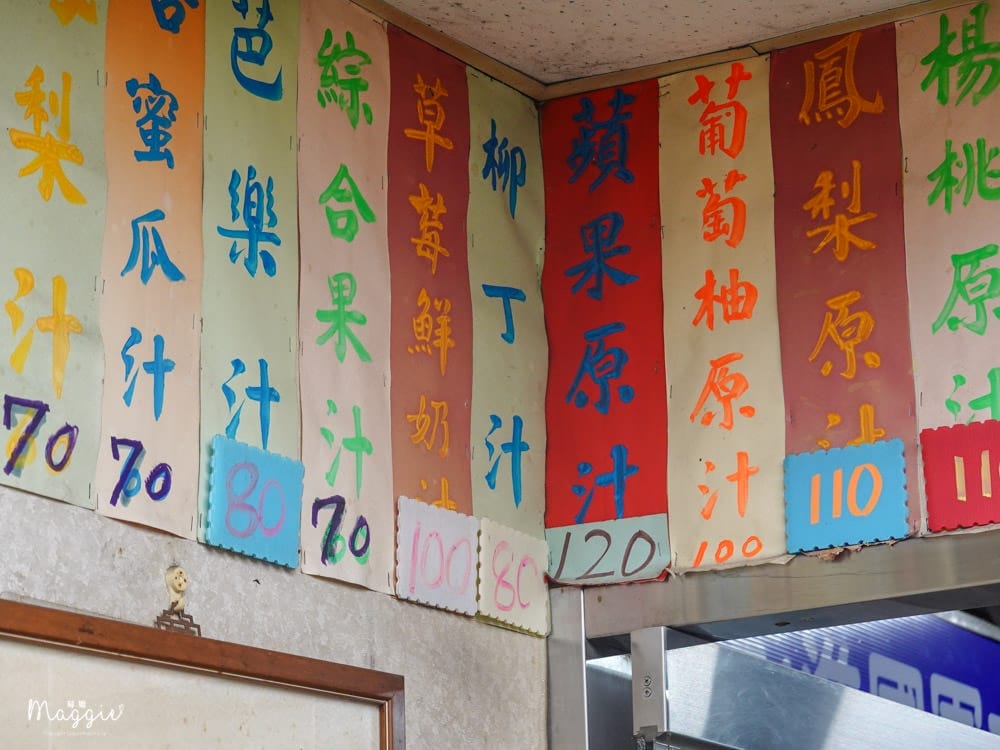 梨汁70
哈蜜瓜汁70
芭樂汁80
綜合果汁70
草莓鮮奶汁100
柳丁汁80
蘋果原汁120
葡萄柚原汁100
鳳梨原汁110
楊桃原汁11
Maggie